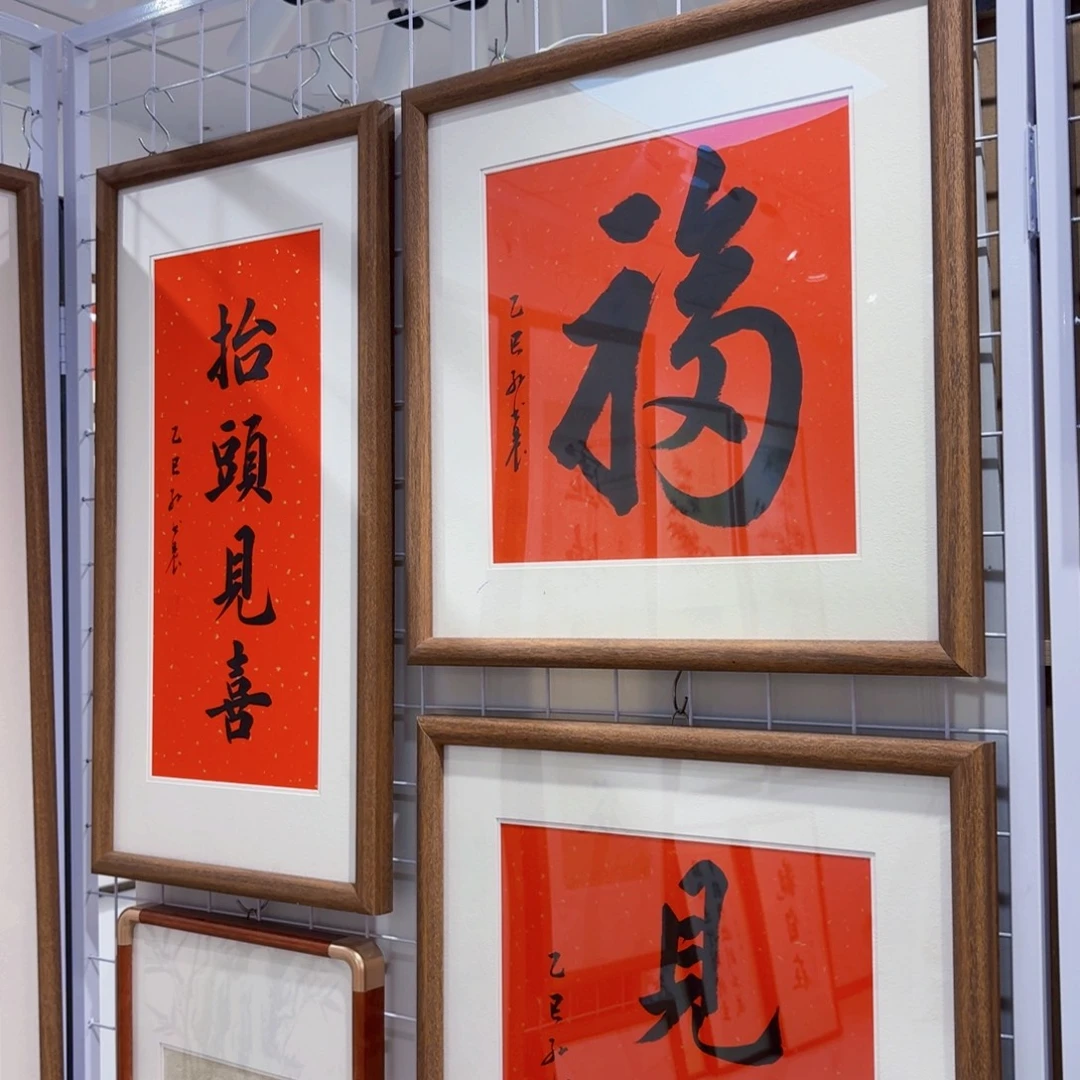 抬頭見喜
乙巳
福
乙巳
見
乙巳